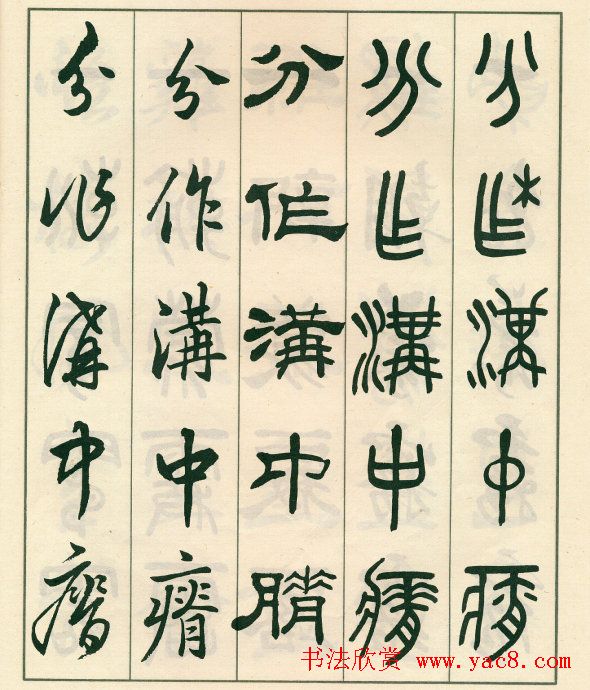 分作溝中瘠
分作溝中瘠
分作溝中膌
分作溝中瘠
分作溝中瘠
书法欣赏 www.yac8.com